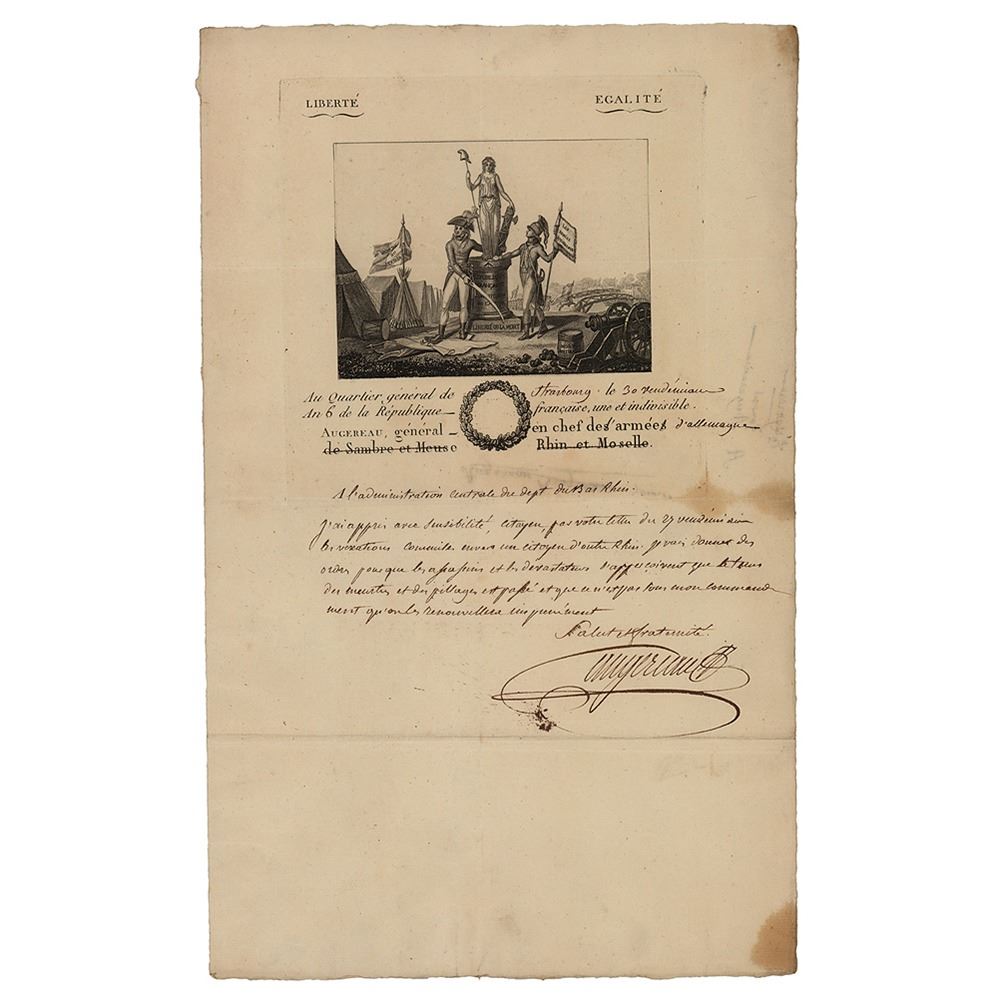 LIBERTÉ EGALITÉ
LIBERTÉ OU LA MORT
Au Quartier général de Strasbourg. le 30 vendémiaire
An 6 de la République française, une et indivisible.
AUGEREAU, général en chef des armées d'allemagne
de Sambre et Meuse Rhin et Moselle.
A l'administration centrale du dept du Bas Rhin.
J'ai appris avec sensibilité, citoyen, par votre lettre du 27 vendémiaire
les vexations commises envers un citoyen d'outre Rhin. je vais donner des
ordres pour que les assassins et les dévastateurs s'apperçoivent que le tems
des meurtres et des pillages est passé et que ce n'est pas sous mon commande
ment qu'on les renouvellera impunément
Salut et fraternité.
augereau